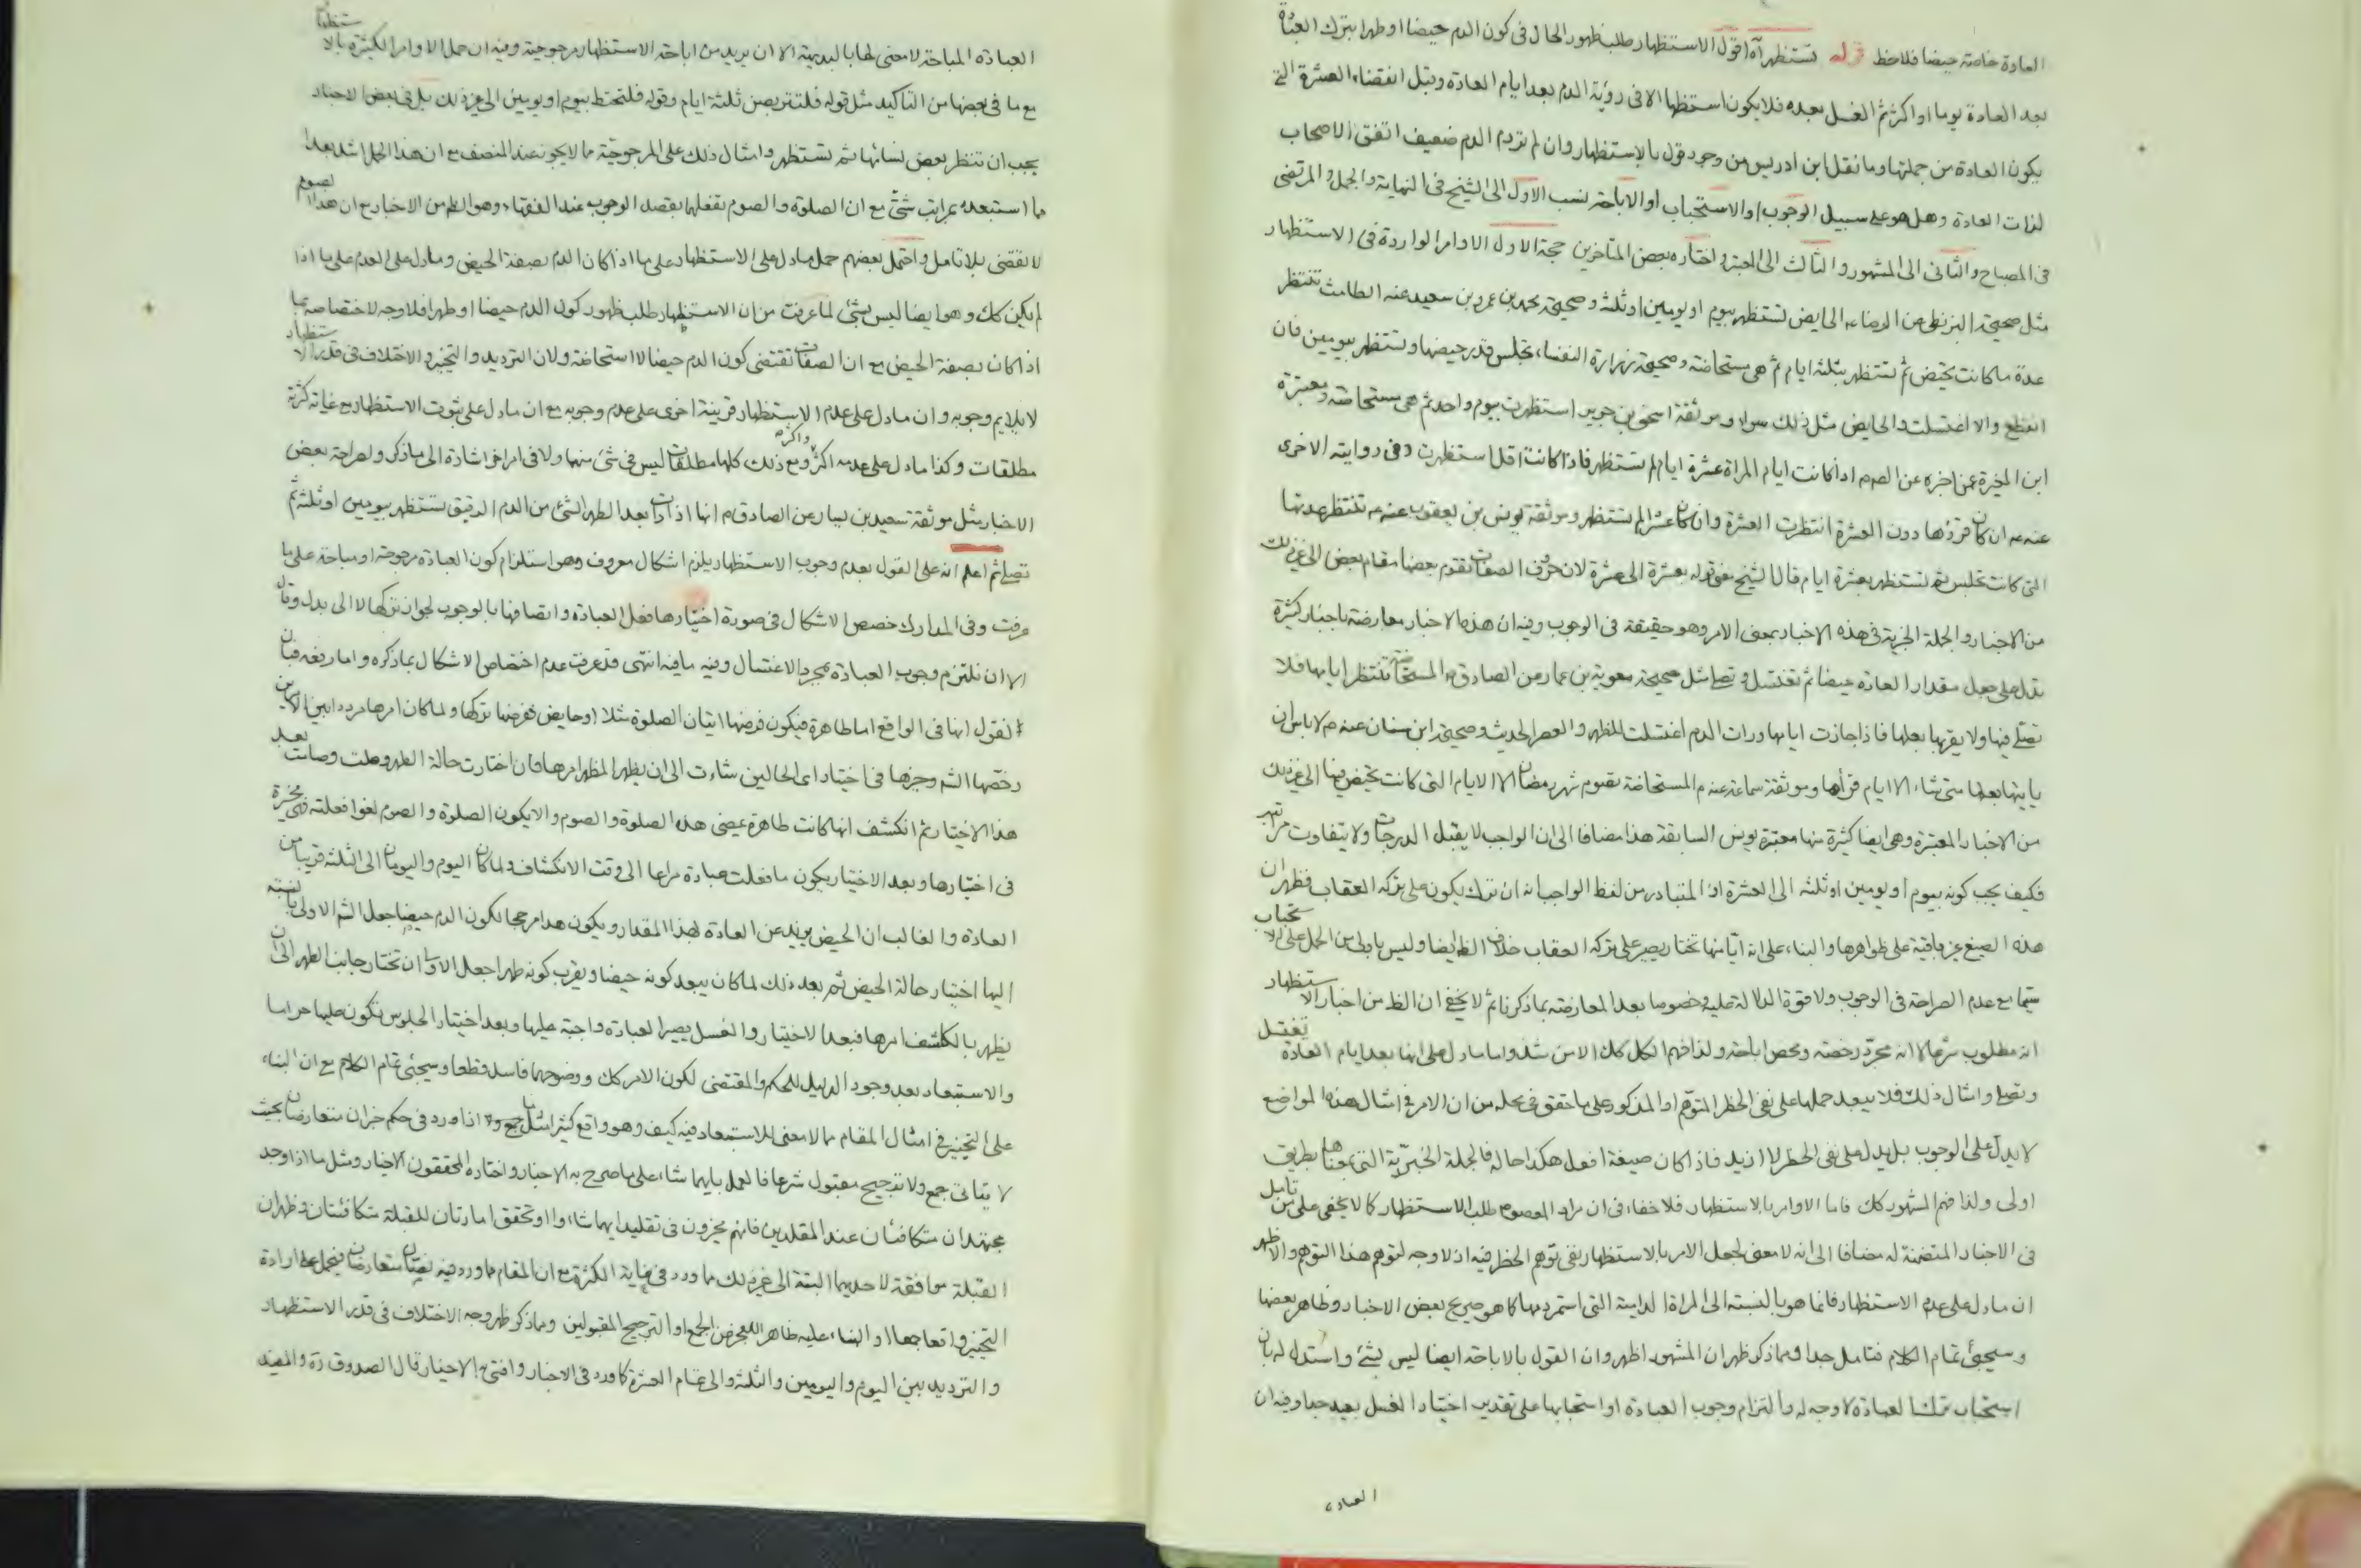 العادة خاصة حيضا فلاحظ قوله تستظهر آه اقول الاستظهار طلب ظهور الحال فى كون الدم حيضا او طهرا بترك العبادة
بعد العادة يوما او اكثر ثم الغسل بعده فلا يكون استظهارا الا فى رؤية الدم بعد ايام العادة وقبل انقضاء العشرة التى
يكون العادة من جملتها وما نقل ابن ادريس من وجود قول بالاستظهار وان لم تر دم الدم ضعيف اتفق الاصحاب
لذات العادة وهل هو على سبيل الوجوب او الاستحباب او الاباحة نسب الاول الى الشيخ فى النهاية والجمل والمرتضى
فى المصباح والثانى الى المشهور والثالث الى المعتبر واختاره بعض المتاخرين حجة الاول الاوامر الواردة فى الاستظهار
مثل صحيحة البزنطى عن الرضا عه الحايض تستظهر بيوم او يومين او ثلثة وصحيحة محمد بن عمرو بن سعيد عنه الطامث تنتظر
عدة ما كانت تحيض ثم تستظهر بثلثة ايام ثم هى مستحاضة وصحيحة زرارة النفساء تجلس قدر حيضها وتستظهر بيومين فان
انقطع والا اغتسلت والحايض مثل ذلك سواء وموثقة اسحق بن جرير استظهرت بيوم واحد ثم هى مستحاضة ومعتبرة
ابن المغيرة عمن اخبره عن الصم اذا كانت ايام المراة عشرة ايام لم تستظهر فاذا كانت اقل استظهرت وفى روايته الاخرى
عنه عه ان كان قرؤها دون العشرة انتظرت العشرة وان كان عشرا لم تستظهر وموثقة يونس بن يعقوب عنه عه تنتظر عدتها
التى كانت تجلس ثم تستظهر بعشرة ايام قال الشيخ معنى قوله بعشرة الى عشرة لان حروف الصفات تقوم بعضها مقام بعض الى غير ذلك
من الاخبار والجملة الخبرية فى هذه الاخبار بمعنى الامر وهو حقيقة فى الوجوب وفيه ان هذه الاخبار معارضة باخبار كثيرة
تدل على جعل مقدار العادة حيضا ثم تغتسل وتصلى مثل صحيحة معوية بن عمار عن الصادق م المستحاضة تنتظر ايامها فلا
تصلى فيها ولا يقربها بعلها فاذا جازت ايامها ورات الدم اغتسلت للظهر والعصر الحديث وصحيحة ابن سنان عنه م لا باس ان
ياتيها بعلها متى شاء الا ايام قرأها وموثقة سماعة عنه م المستحاضة تصوم شهر رمضان الا الايام التى كانت تحيض فيها الى غير ذلك
من الاخبار المعتبرة وهى ايضا كثيرة منها معتبرة يونس السابقة هذا مضافا الى ان الواجب لا يقبل الدرجات ولا يتفاوت مراتبه
فكيف يجب كونه بيوم او يومين او ثلثة الى العشرة اذ المتبادر من لفظ الواجب انه ان ترك يكون على تركه العقاب فظهر ان
هذه الصيغ غير باقية على ظواهرها والبناء على انه ايا منها تختار يصير على تركه العقاب خلاف الظ ايضا وليس باولى من الحمل على الاستحباب
سيما مع عدم الصراحة فى الوجوب ولا قوة الدلالة عليه وخصوصا بعد المعارضة بما ذكرنا ثم لا يخفى ان الظ من اخبار الاستظهار
انه مطلوب شرعا لا انه مجرد رخصة ومحض اباحة ولذا فهم الكل كك الا من شذ واما ما دل على انها بعد ايام العادة تغتسل
وتصلى وامثال ذلك فلا يبعد حملها على نفى الحظر المتوهم او المذكور على ما حقق فى محله من ان الامر فى امثال هذه المواضع
لا يدل على الوجوب بل يدل على نفى الحظر لا ازيد فاذا كان صيغة افعل هكذا حاله فالجملة الخبرية التى بمعناها بطريق
اولى ولذا فهم المشهور كك فاما الاوامر بالاستظهار فلا خفاء فى ان مراد المعصوم طلب الاستظهار كما لا يخفى على من تامل
فى الاخبار المتضمنة له مضافا الى انه لا معنى لجعل الامر بالاستظهار نفى توهم الحظر فيه اذ لا وجه لتوهم هذا التوهم والاظهر
ان ما دل على عدم الاستظهار فانما هو بالنسبة الى المراة الدامية التى استمر دمها كما هو صريح بعض الاخبار وظاهر بعضها
وسيجئ تمام الكلام فتامل جدا ومما ذكر ظهر ان المشهور اظهر وان القول بالاباحة ايضا ليس بشئ واستدل له بان
استحباب ترك العبادة لا وجه له والتزام وجوب العبادة او استحبابها على تقدير اختيار الغسل بعيد جدا وفيه ان
العبادة
العبادة المباحة لا معنى لها بالبديهة الا ان يريد من اباحة الاستظهار مرجوحيته وفيه ان حمل الاوامر الكثيرة بالاستظهار
مع ما فى بعضها من التاكيد مثل قوله فلتتربصن ثلثة ايام وقوله فلتحتط بيوم او يومين الى غير ذلك بل فى بعض الاخبار
يجب ان تنظر بعض نسائها ثم تستظهر وامثال ذلك على المرجوحية مما لا يجوز عند المنصف مع ان هذا الحمل اشد بعدا
مما استبعده بمراتب شتى مع ان الصلوة والصوم تفعلهما بقصد الوجوب عند الفقهاء وهو الظ من الاخبار مع ان هذا الصوم
لا تقضى بلا تامل واحتمل بعضهم حمل ما دل على الاستظهار على ما اذا كان الدم بصفة الحيض وما دل على العدم على ما اذا
لم يكن كك وهو ايضا ليس بشئ لما عرفت من ان الاستظهار طلب ظهور كون الدم حيضا او طهرا فلا وجه لاختصاصه بما
اذا كان بصفة الحيض مع ان الصفات تقتضى كون الدم حيضا لا استحاضة ولان الترديد والتخيير والاختلاف فى قدر الاستظهار
لا يلايم وجوبه وان ما دل على عدم الاستظهار قرينة اخرى على عدم وجوبه مع ان ما دل على ثبوت الاستظهار مع غاية كثرته
مطلقات وكذا ما دل على عدمه اكثر واكثره ومع ذلك كلها مطلقات ليس فى شئ منها ولا فى امر اخر اشارة الى ما ذكر ولصراحة بعض
الاخبار مثل موثقة سعيد بن يسار عن الصادق م انها اذا رات بعد الطهر الشئ من الدم الرقيق تستظهر بيومين او ثلثة ثم
تصلى ثم اعلم انه على القول بعدم وجوب الاستظهار يلزم اشكال معروف وهو استلزام كون العبادة مرجوحة او مباحة على ما
عرفت وفى المدارك خصص الاشكال فى صورة اختيارها فعل العبادة واتصافها بالوجوب لجواز تركها لا الى بدل وقال
الا ان نلتزم وجوب العبادة بمجرد الاغتسال وفيه ما فيه انتهى قد عرفت عدم اختصاص الاشكال بما ذكره واما رفعه فبان
نقول انها فى الواقع اما طاهرة فيكون فرضها اتيان الصلوة مثلا او حايض ففرضها تركها ولما كان امرها مرددا بين الامرين
رخصها الشم وخيرها فى اختيار اى الحالين شاءت الى ان يظهر المظهر امرها فان اختارت حالة الطهر وصلت وصامت بعد
هذا الاختيار ثم انكشف انها كانت طاهرة يمضى هذه الصلوة والصوم والا يكون الصلوة والصوم لغوا فعلته فهى مخيرة
فى اختيارها وبعد الاختيار يكون ما فعلت عبادة مراعا الى وقت الانكشاف ولما كان اليوم واليومان الى الثلثة قريبا من
العادة والغالب ان الحيض يزيد عن العادة بهذا المقدار ويكون هذا مرجحا لكون الدم حيضا جعل الشم الاولى بالنسبة
اليها اختيار حالة الحيض ثم بعد ذلك لما كان يبعد كونه حيضا ويقرب كونه طهرا جعل الاولى ان تختار جانب الطهر الى ان
يظهر بالكاشف امرها فبعد الاختيار والغسل يصير العبادة واجبة عليها وبعد اختيار الجلوس تكون عليها حراما
والاستبعاد بعد وجود الدليل للحكم والمقتضى لكون الامر كك ووضوحهما فاسد قطعا وسيجئ تمام الكلام مع ان البناء
على التخيير فى امثال المقام مما لا معنى للاستبعاد فيه كيف وهو واقع كثيرا مثل ما اذا ورد فى حكم خبران متعارضان بحيث
لا يتاتى جمع ولا ترجيح مقبول شرعا فالعمل بايهما شاء على ما صرح به الاخبار واختاره المحققون الاخيار ومثل ما اذا وجد
مجتهدان متكافئان عند المقلدين فانهم يخيرون فى تقليد ايهما شاؤا او تحقق امارتان للقبلة متكافئتان وظهر ان
القبلة موافقة لاحديهما البتة الى غير ذلك مما ورد فى غاية الكثرة مع ان المقام مما ورد فيه نصان متعارضان فيحمل على ارادة
التخيير واقعا جمعا او البناء عليه ظاهرا للعجز عن الجمع او الترجيح المقبولين ومما ذكر ظهر وجه الاختلاف فى قدر الاستظهار
والترديد بين اليوم واليومين والثلثة والى تمام العشرة كما ورد فى الاخبار وافتى به الاخيار قال الصدوق ره والمفيد